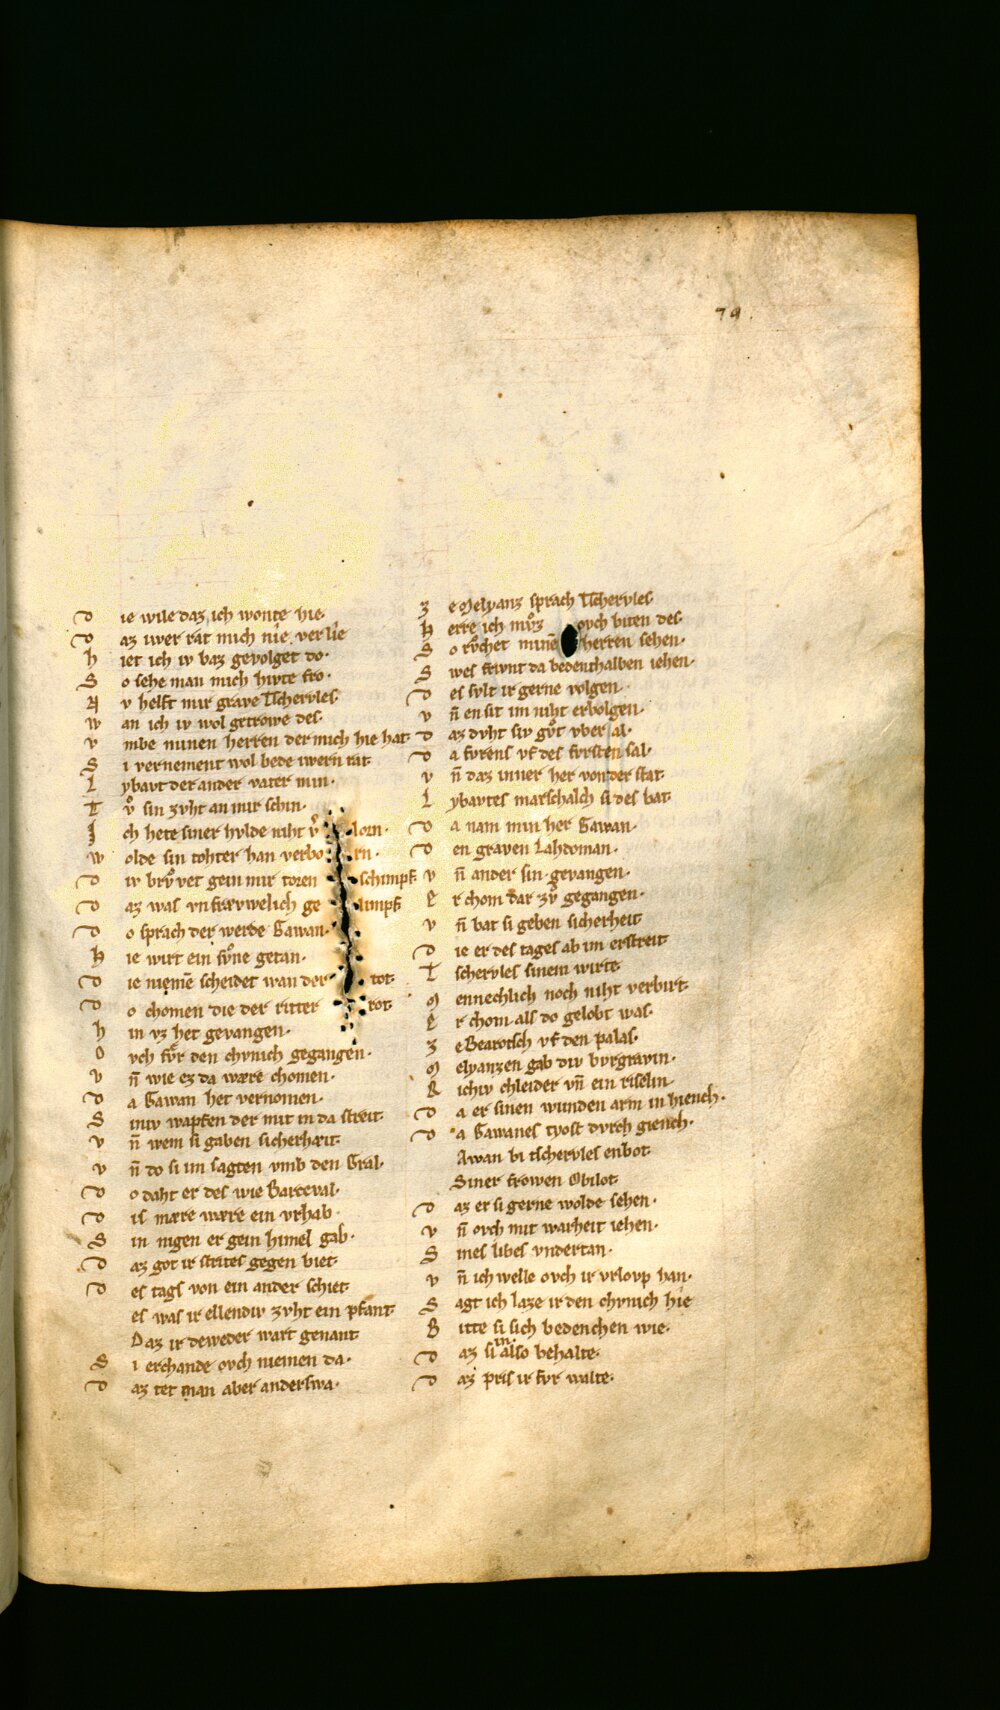 79.
D ie wile daz ich wonte hie·
D az iwer rat mich nie verlie
H iet ich iv baz gevolget do·
S o sehe man mich hivte fro·
N v helft mir grave Tschervles·
W an ich iv wol getrowe des·
V mbe minen herren der mich hie hat·
S i vernement wol bede iwern rat·
L ybavt der ander vater min·
T vͦ sin zvht an mir schin·
I ch hete siner hvlde niht v͛ lorn·
W olde sin tohter han verbo rn·
D iv brvͦvet gein mir toren schimpf·
D az was vnfrӕvwelich ge limpf
D o sprach der werde Gawan·
H ie wirt ein svͦne getan·
D ie niemē scheidet wan der tot·
D o chomen die der ritter rot·
H in vz het gevangen·
O vch fvͤr den chvnich gegangen·
V n̄ wie ez da wӕre chomen·
D a Gawan het vernomen·
S iniv wapfen der mit in da streit·
V n̄ wem si gaben sicherhӕit·
V n̄ do si im sagten vmb den Gral·
D o daht er des wie Parceval·
D is mӕre wӕre ein vrhab·
S in nigen er gein himel gab·
D az got ir strites gegen biet·
D es tags von ein ander schiet·
es was ir ellendiv zvht ein pfant·
Daz ir deweder wart genant·
S i erchande ovch niemen da·
D az tet man aber anderswa·
Z e Melyanz sprach Tschervles·
H erre ich mvͦz ovch biten des·
S o rvͦchet minē herren sehen·
S wes frivnt da bedenthalben iehen·
D es svlt ir gerne volgen·
V n̄ en sit im niht erbolgen·
D az dvht siv gvͦt vber al·
D a fvrens vf des fvrsten sal·
V n̄ daz inner her von der stat·
L ybavtes marschalch si des bat·
D a nam min her Gawan·
D en graven Lahdoman·
V n̄ ander sin gevangen·
E r chom dar zvͦ gegangen·
V n̄ bat si geben sicherheit·
D ie er des tages ab im erstreit·
T schervles sinem wirte·
M ennechlich noch niht verbirt·
E r chom als do gelobt was·
Z e Bearotsch vf den palas·
M elyanzen gab div bvrgravin·
R ichiv chleider vn̄ ein riselin·
D a er sinen wunden arm in hiench·
D a Gawanes tyost dvrch giench·
Awan bi tschervles enbot·
Siner frowen Obilot·
D az er si gerne wolde sehen·
V n̄ ovch mit warheit iehen·
S ines libes vndertan·
V n̄ ich welle ovch ir vrlovp han·
S agt ich laze ir den chvnich hie
B itte si sich bedenchen wie·
D az si in also behalte·
D az pris ir fvr walte·